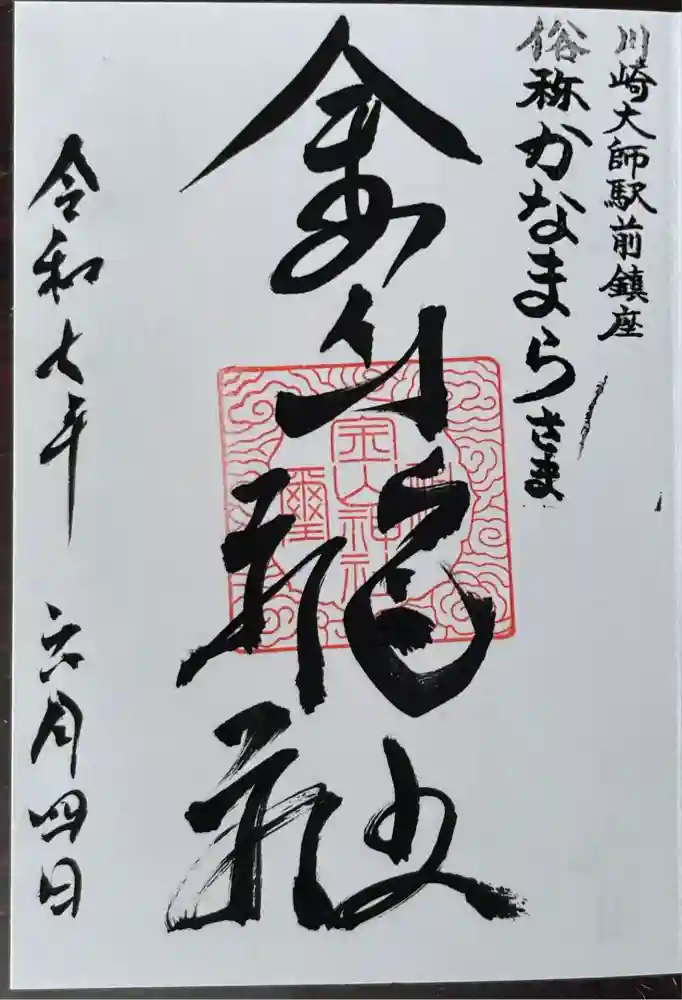 川崎大師駅前鎮座
俗称かなまらさま
金山神社
金山神社
璽
令和七年 六月四日